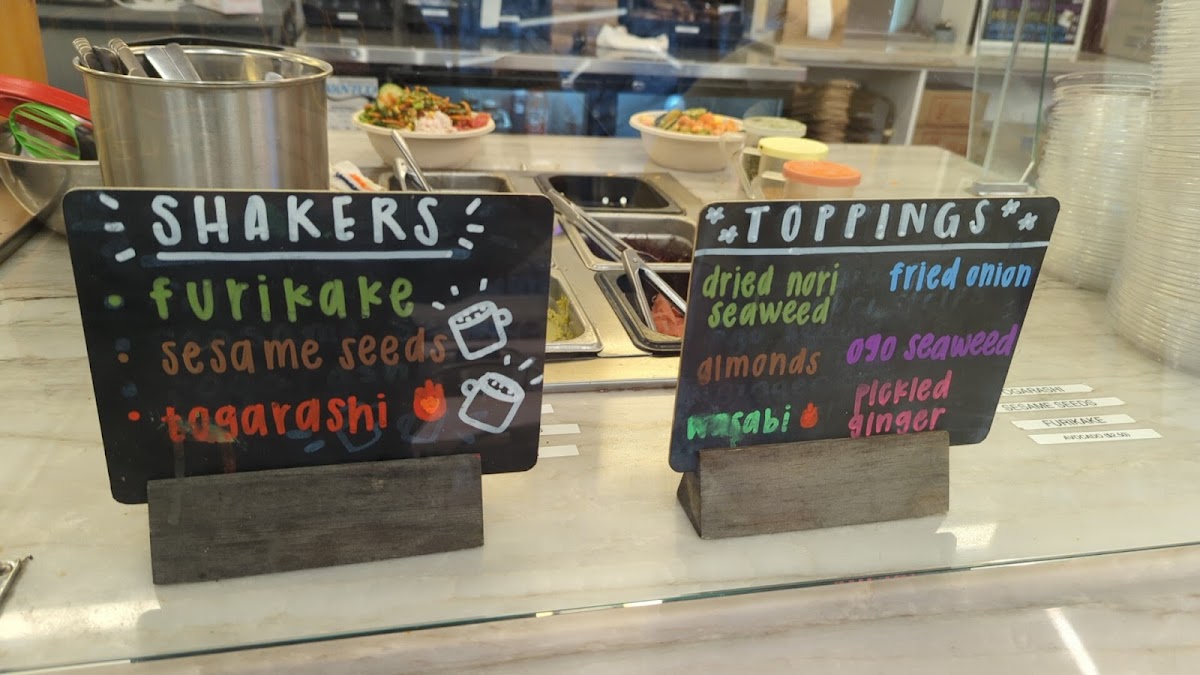 SHAKERS
furikake
sesame seeds
togarashi
TOPPINGS
dried nori
seaweed
fried onion
almonds
ogo seaweed
wasabi
pickled
ginger
SESAME SEEDS
FURIKAKE